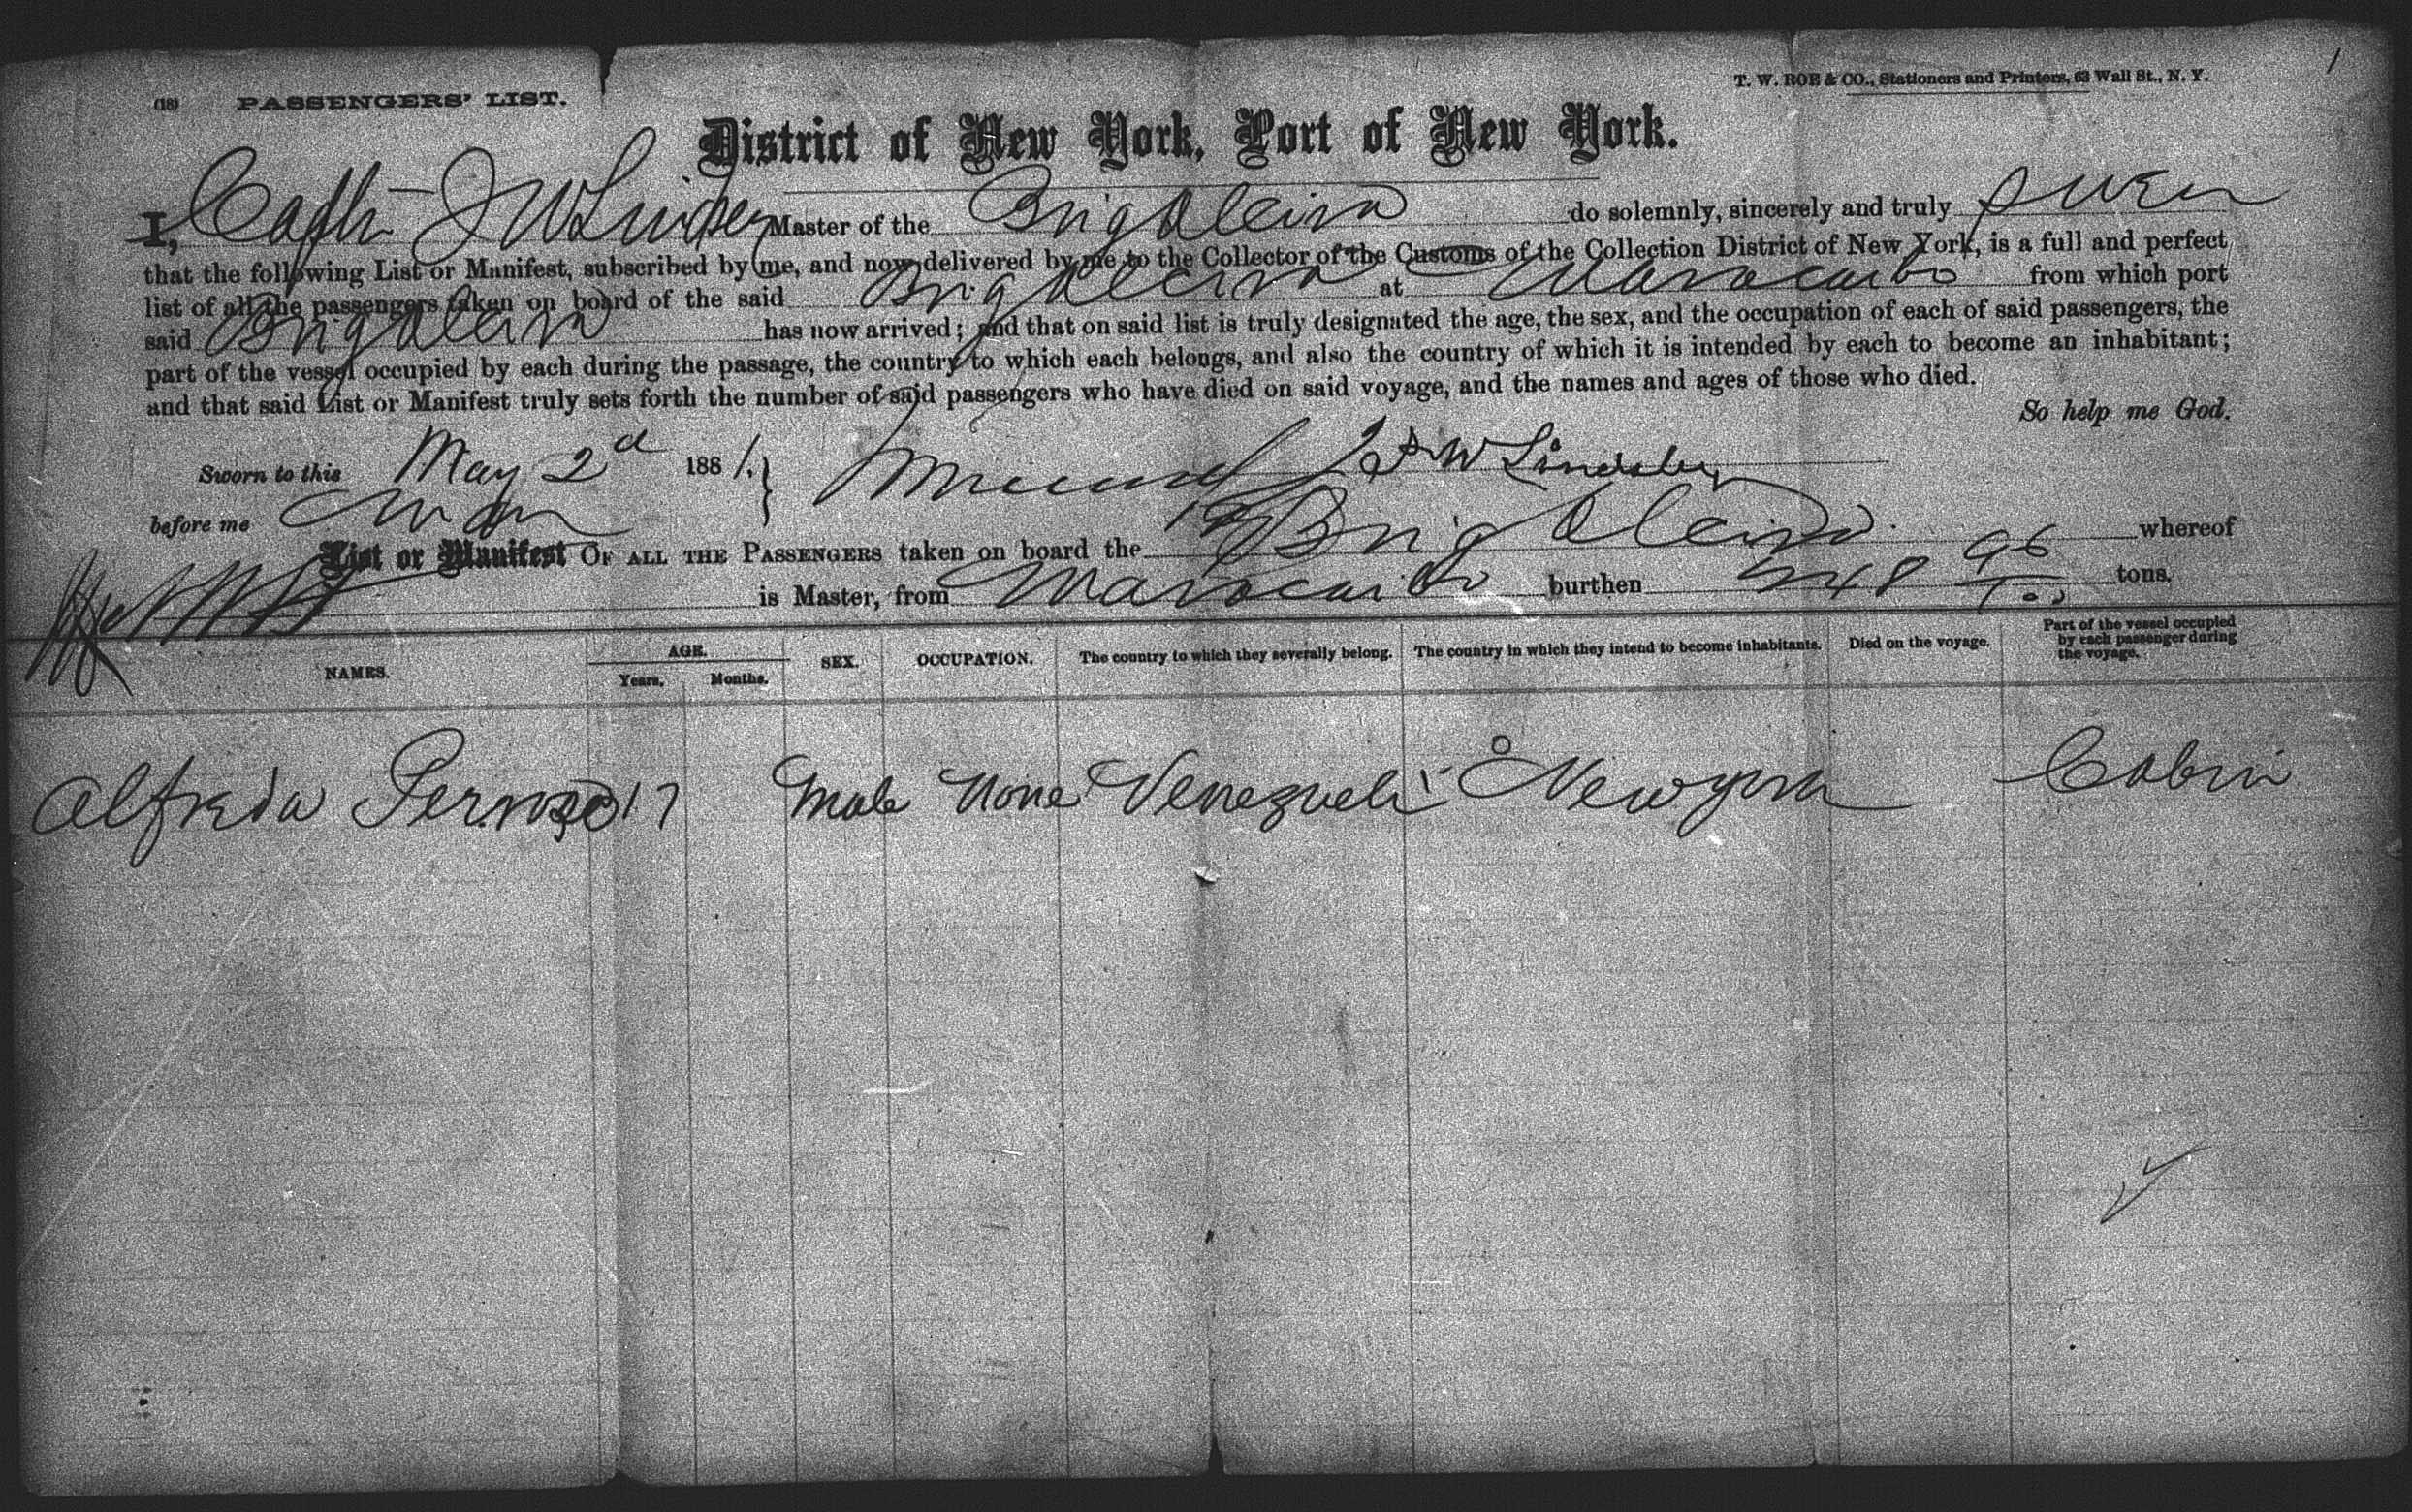 1
T. W. ROE & CO., Stationers and Printers, 63 Wall St., N. Y.
(18) PASSENGERS' LIST.
District of New York, Port of New York.
I, Capt J W Master of the Brig do solemnly, sincerely and truly Swear
that the following List or Manifest, subscribed by me, and now delivered by me to the Collector of the Customs of the Collection District of New York, is a full and perfect
list of all the passengers taken on board of the said Brig at Maracaibo from which port
said Brig has now arrived; and that on said list is truly designated the age, the sex, and the occupation of each of said passengers, the
part of the vessel occupied by each during the passage, the country to which each belongs, and also the country of which it is intended by each to become an inhabitant;
and that said List or Manifest truly sets forth the number of said passengers who have died on said voyage, and the names and ages of those who died.
So help me God.
Sworn to this May 2d 1881. } W
before me
List or Manifest OF ALL THE PASSENGERS taken on board the Brig whereof
is Master, from Maracaibo burthen 96/100 tons.
NAMES. AGE. Years. Months. SEX. OCCUPATION. The country to which they severally belong. The country in which they intend to become inhabitants. Died on the voyage. Part of the vessel occupied by each passenger during the voyage.
Alfredo 17 Male None Venezuela New York Cabin